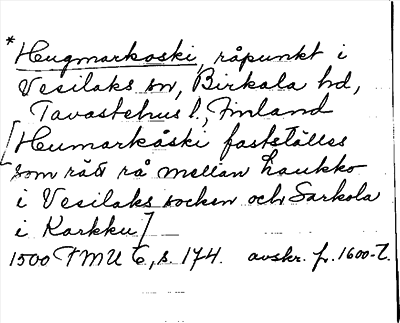 *Heugmarkoski, råpunkt i
Vesilaks sn, Birkala hd,
Tavastehus l., Finland
[Heumarkåski fastställes
som rätt rå mellan Laukko
i Vesilaks socken och Sarkola
i Karkku]
1500 FMU 6, s. 174. avskr. fr. 1600-t.